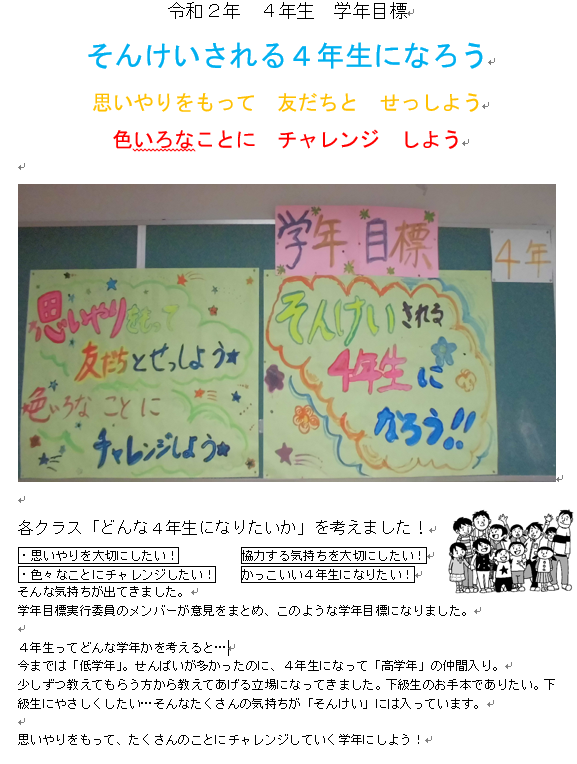 令和２年　４年生　学年目標
そんけいされる４年生になろう
思いやりをもって　友だちと　せっしよう
色いろなことに　チャレンジ　しよう
学年目標
４年
思いやりをもって
友だちとせっしよう
色いろな ことに
チャレンジしよう
そんけいされる
4年生に
なろう!!
各クラス「どんな４年生になりたいか」を考えました！
・思いやりを大切にしたい！　協力する気持ちを大切にしたい！
・色々なことにチャレンジしたい！　かっこいい４年生になりたい！
そんな気持ちが出てきました。
学年目標実行委員のメンバーが意見をまとめ、このような学年目標になりました。
４年生ってどんな学年かを考えると…
今までは「低学年」。せんぱいが多かったのに、４年生になって「高学年」の仲間入り。
少しずつ教えてもらう方から教えてあげる立場になってきました。下級生のお手本でありたい。下
級生にやさしくしたい…そんなたくさんの気持ちが「そんけい」には入っています。
思いやりをもって、たくさんのことにチャレンジしていく学年にしよう！